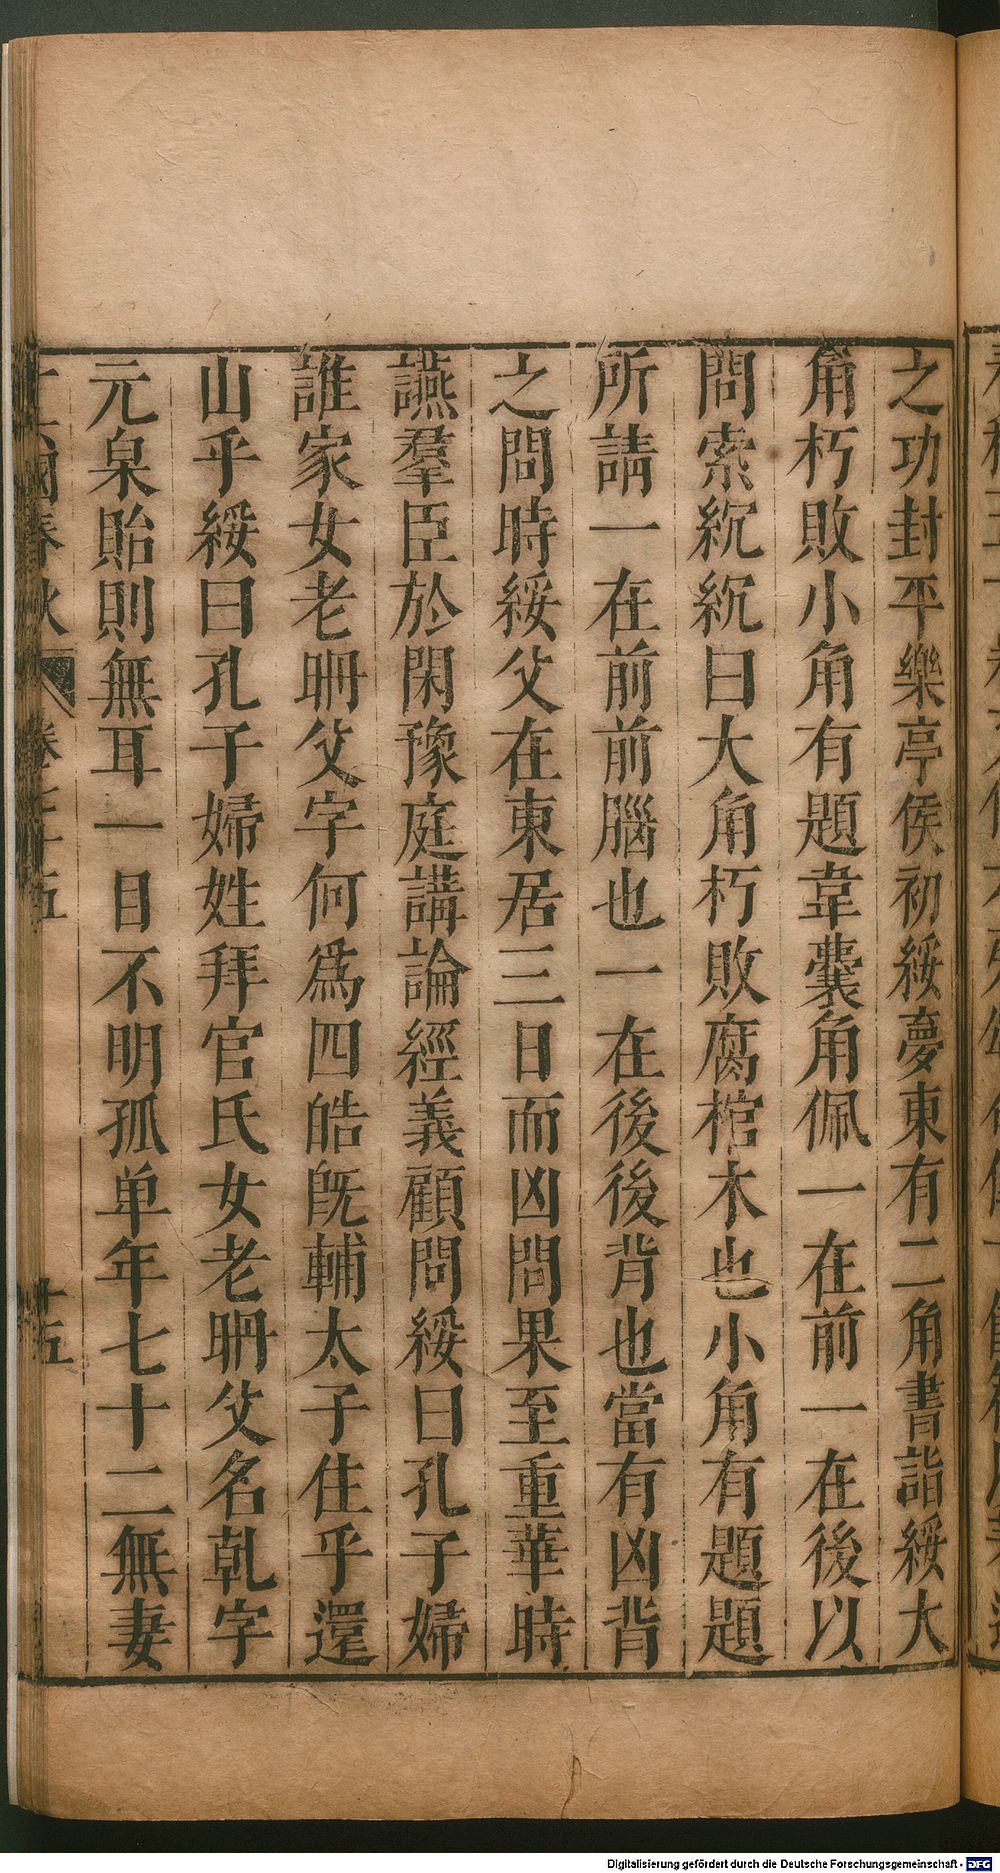 之功封平樂亭侯初綏夢東有二角書詣綏大
角朽敗小角有題韋囊角佩一在前一在後以
問索紞紞曰大角朽敗腐棺木也小角有題題
所請一在前前腦也一在後後背也當有凶背
之問時綏父在東居三日而凶問果至重華時
讌羣臣於閑豫庭講論經義顧問綏曰孔子婦
誰家女老聃父字何爲四皓旣輔太子住乎還
山乎綏曰孔子婦姓拜官氏女老聃父名乹字
元臯貽則無耳一目不明孤单年七十二無妻
十六國春秋 卷七十五 十五
Digitalisierung gefördert durch die Deutsche Forschungsgemeinschaft - DFG